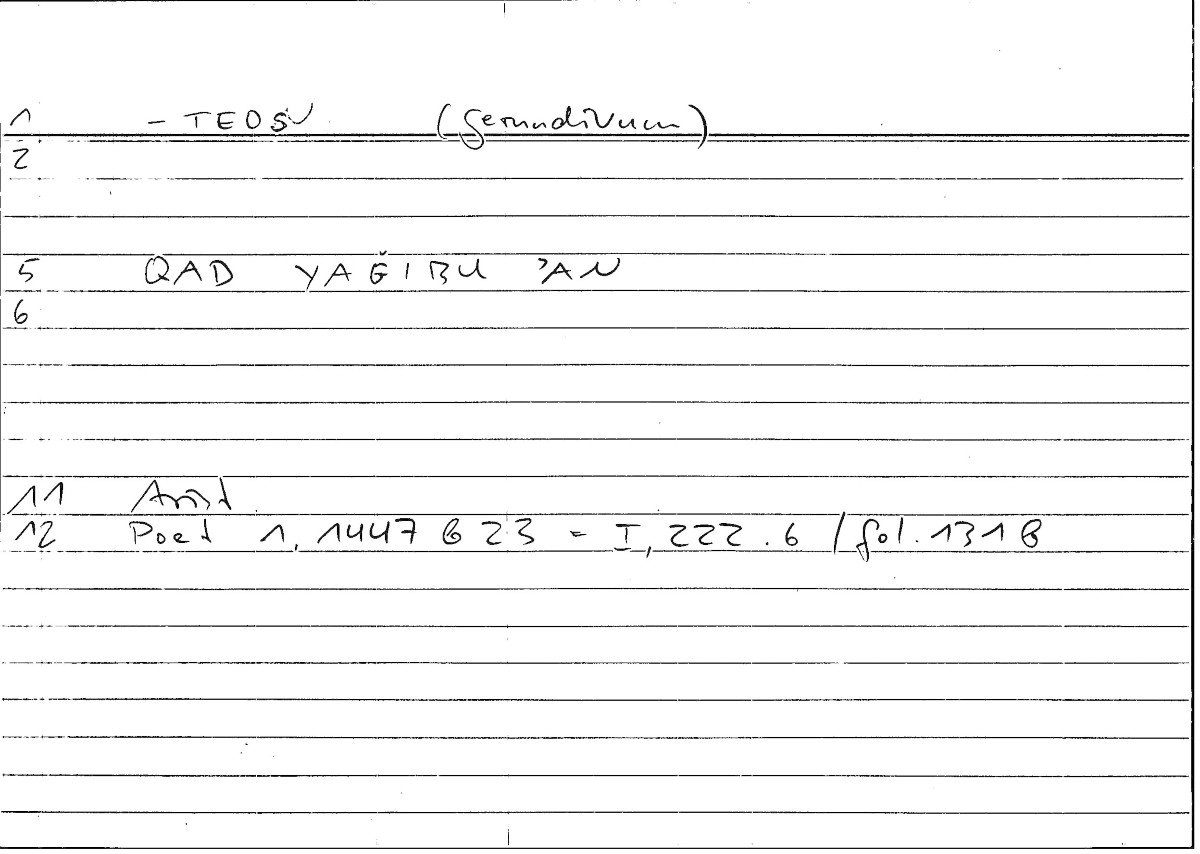 1 - TEOSV (Gerundivum)
2
5 QAD YAĞIBU 'AN
6
11 Arist
12 Poet 1, 1447 b 23 = I, 222.6 / fol. 131 b